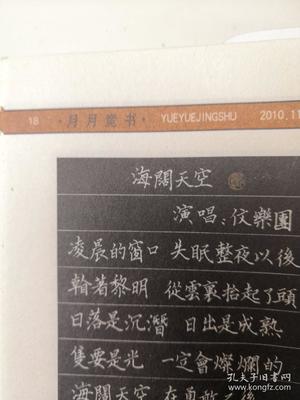 18 ·月月竞书· YUEYUEJINGSHU 2010.11
海闊天空
演唱：伩樂團
凌晨的窗口 失眠整夜以後
看著黎明 從雲裏抬起了頭
日落是沉潛 日出是成熟
隻要是光 一定會燦爛的
海闊天空 在勇敢之後
孔夫子旧书网